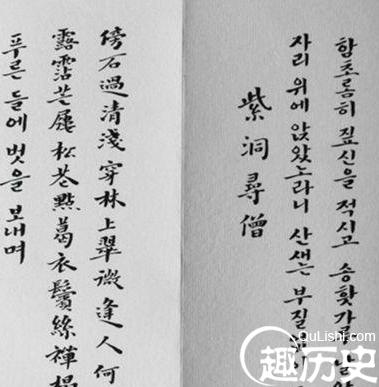 함초롬히 짚신을 적시고
자리 위에 앉았노라니 산새는 부질
紫洞尋僧
傍石過清淺穿林上翠微逢人何
露霑芒屨松花點葛衣鬢絲禪榻
푸른 들에 벗을 보내며
QuLishi.com
趣历史